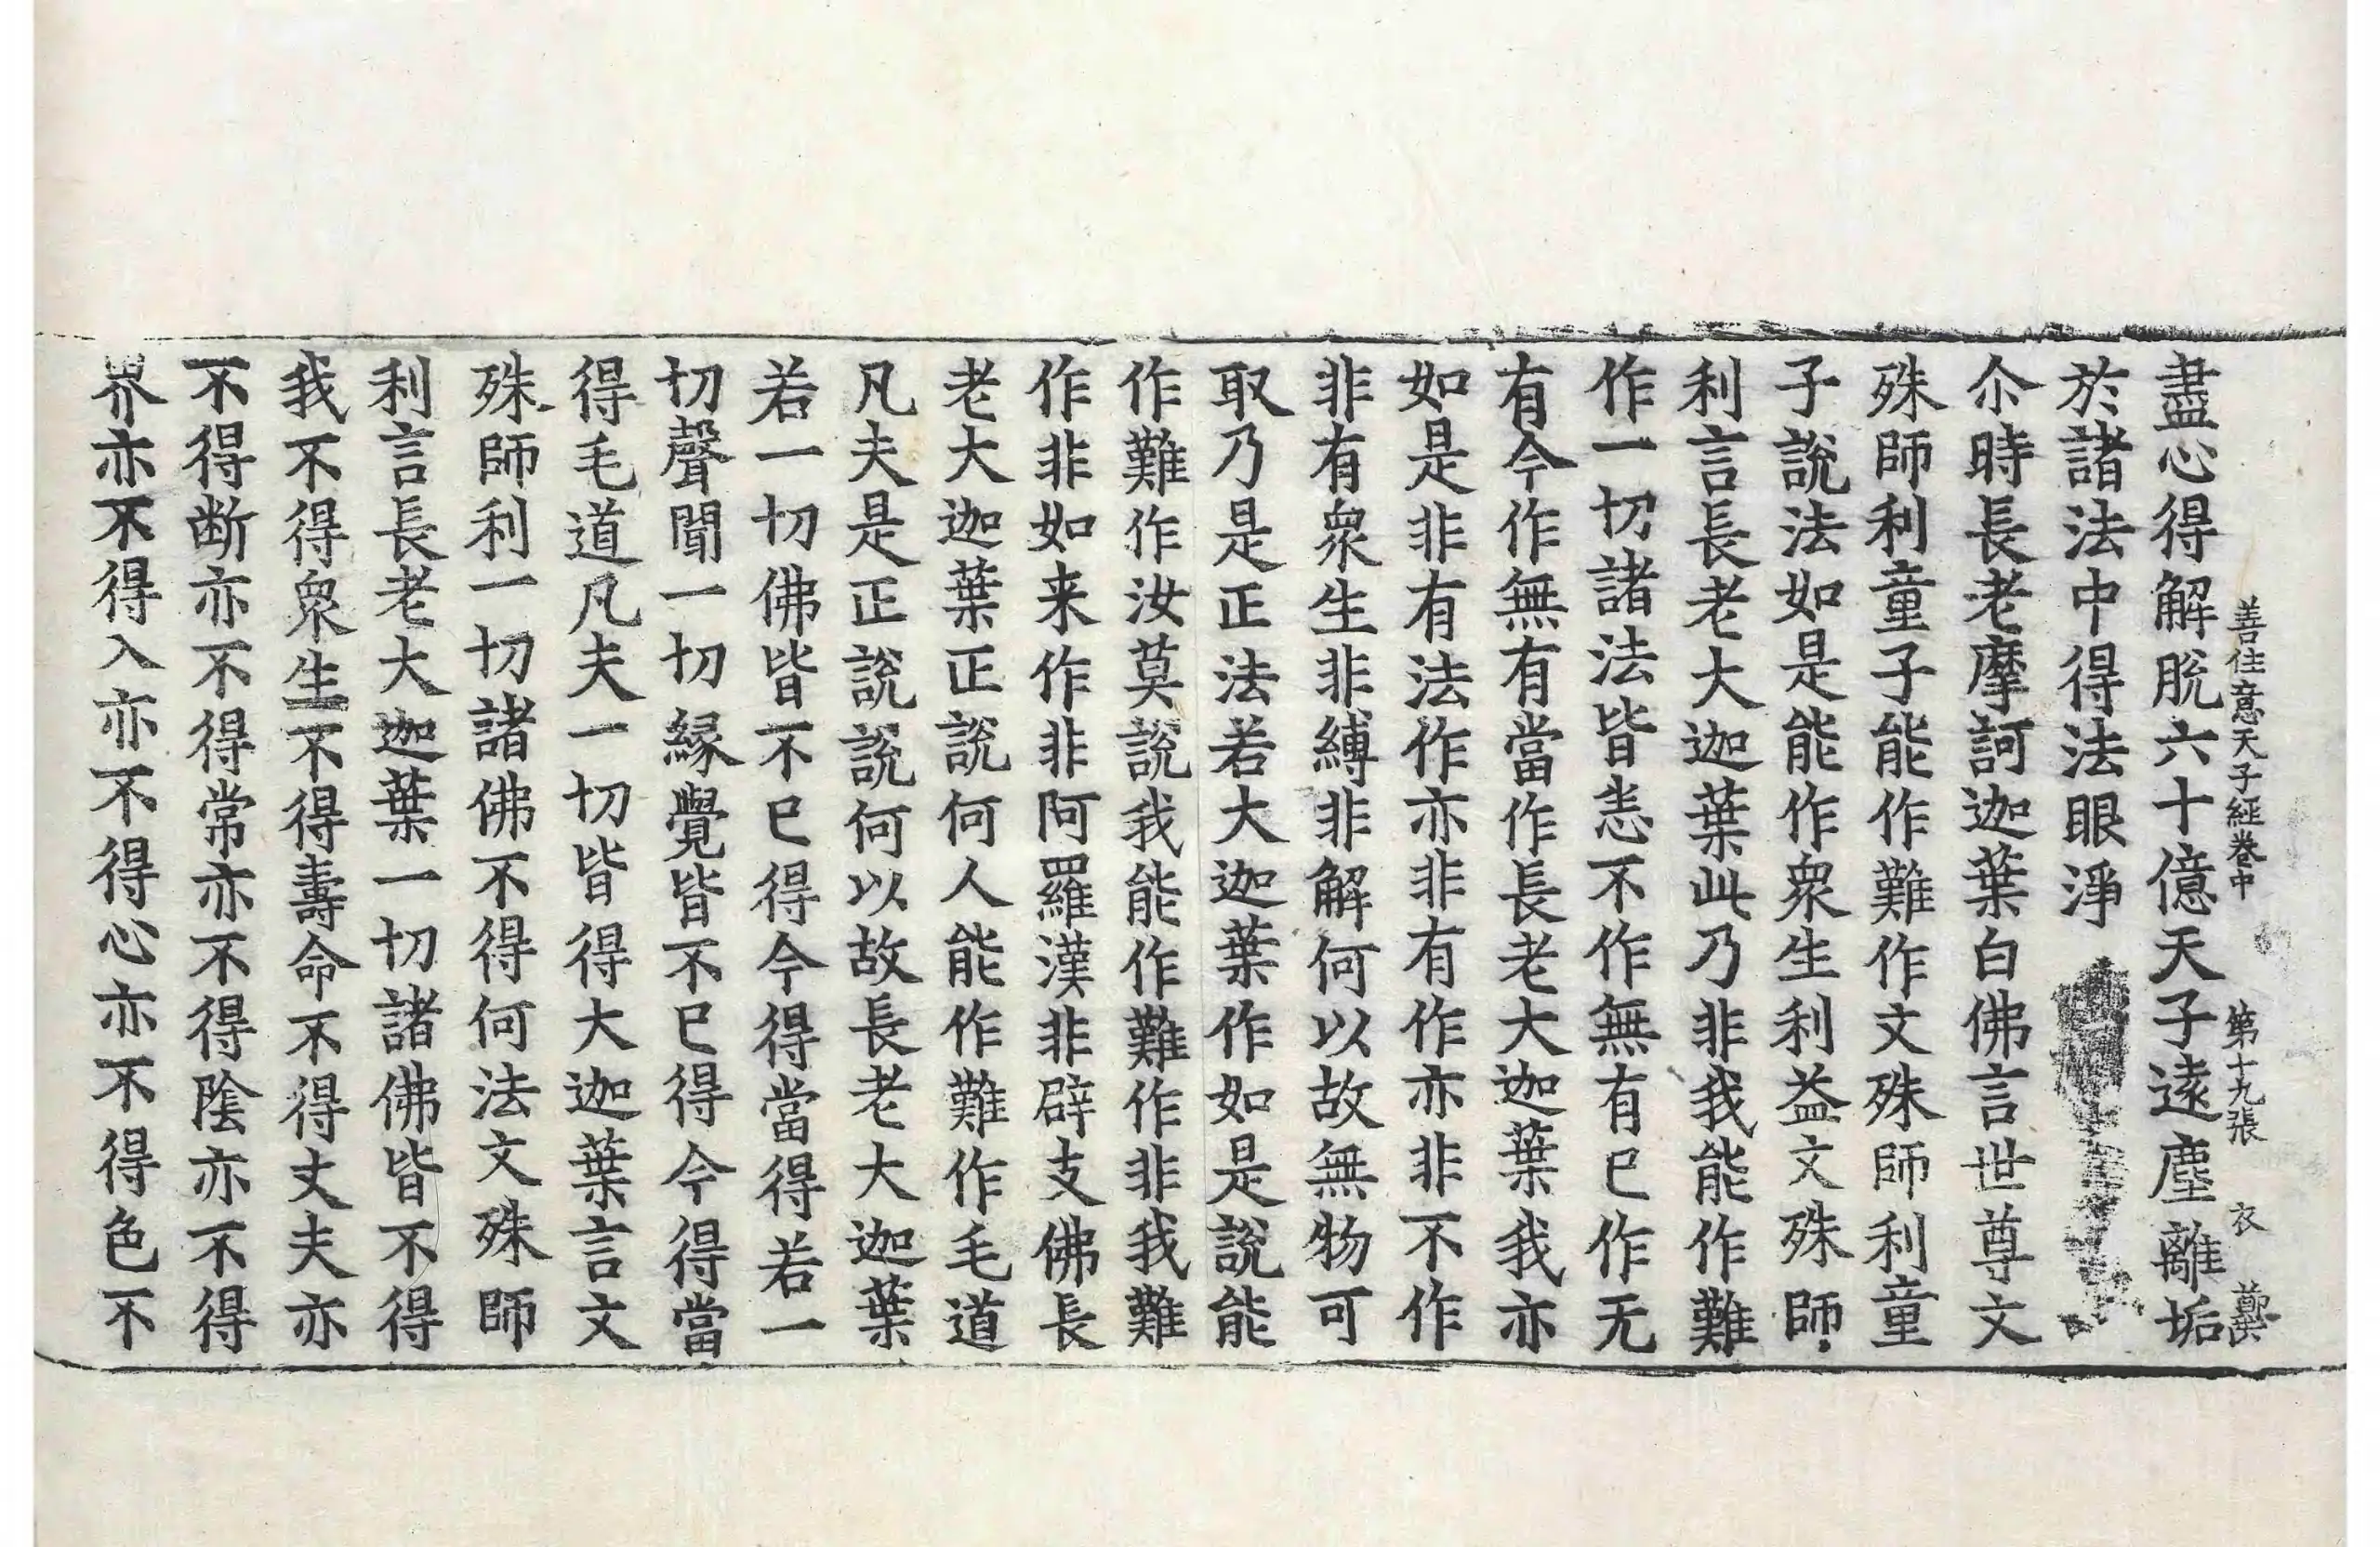 善住意天子經卷中　第十九張　衣
盡心得解脫六十億天子遠塵離垢
於諸法中得法眼淨
尒時長老摩訶迦葉白佛言世尊文
殊師利童子能作難作文殊師利童
子說法如是能作衆生利益文殊師
利言長老大迦葉此乃非我能作難
作一切諸法皆悉不作無有已作无
有今作無有當作長老大迦葉我亦
如是非有法作亦非有作亦非不作
非有衆生非縛非解何以故無物可
取乃是正法若大迦葉作如是說能
作難作汝莫說我能作難作非我難
作非如来作非阿羅漢非辟支佛長
老大迦葉正說何人能作難作毛道
凡夫是正說說何以故長老大迦葉
若一切佛皆不已得今得當得若一
切聲聞一切緣覺皆不已得今得當
得毛道凡夫一切皆得大迦葉言文
殊師利一切諸佛不得何法文殊師
利言長老大迦葉一切諸佛皆不得
我不得衆生不得壽命不得丈夫亦
不得断亦不得常亦不得陰亦不得
界亦不得入亦不得心亦不得色不